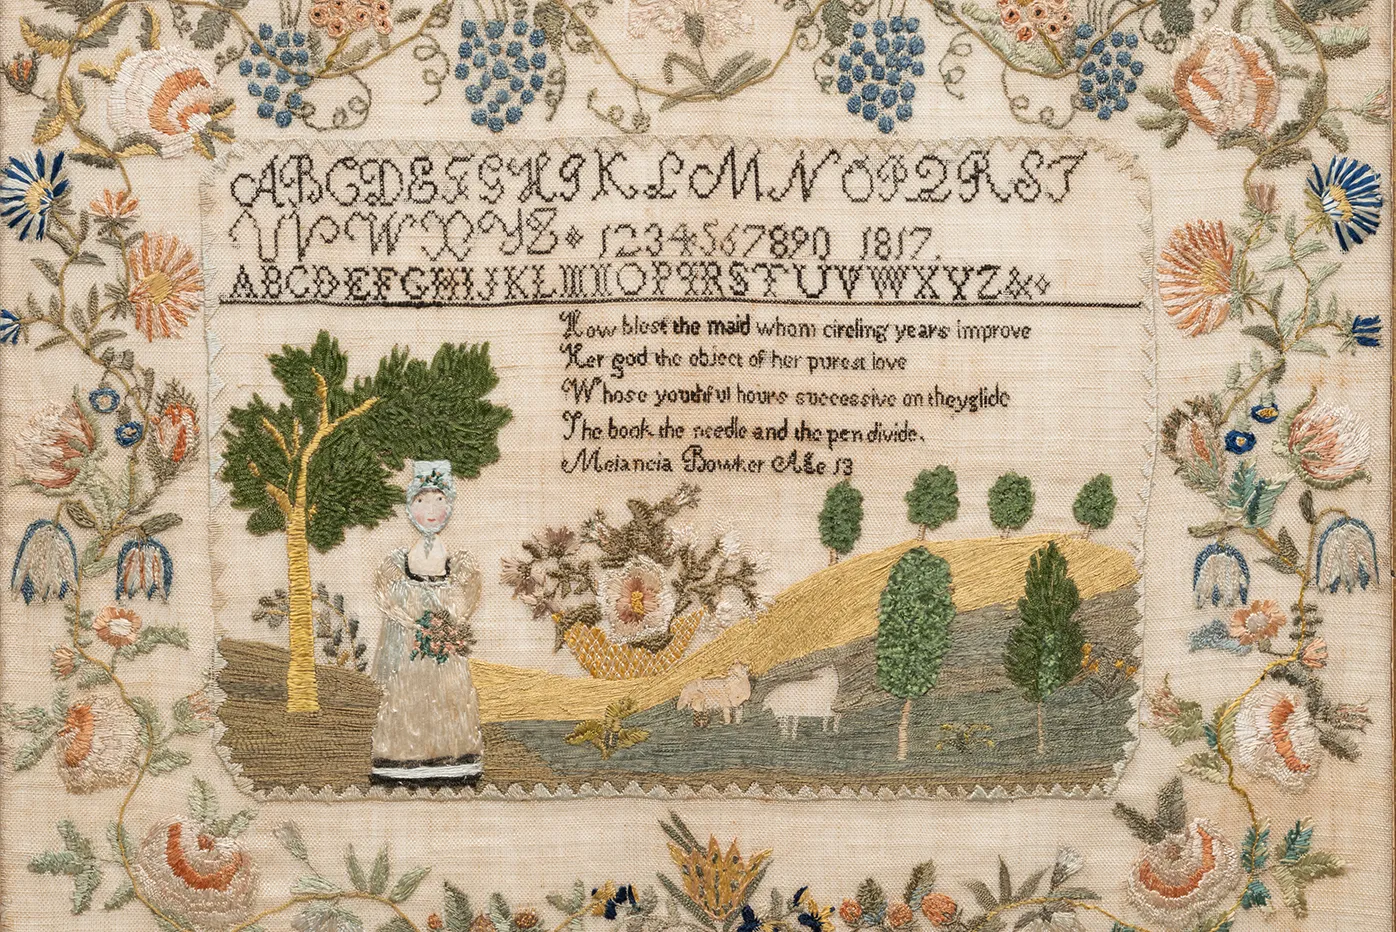 ABCDEFGHIKLMNOPQRST
UVWXYZ 1234567890 1817.
ABCDEFGHIJKLMNOPQRSTUVWXYZ&
How blest the maid whom circling years improve
Her god the object of her purest love
Whose youthful hours successive on theyglide
The book the needle and the pen divide.
Melancia Bowker AGe 13